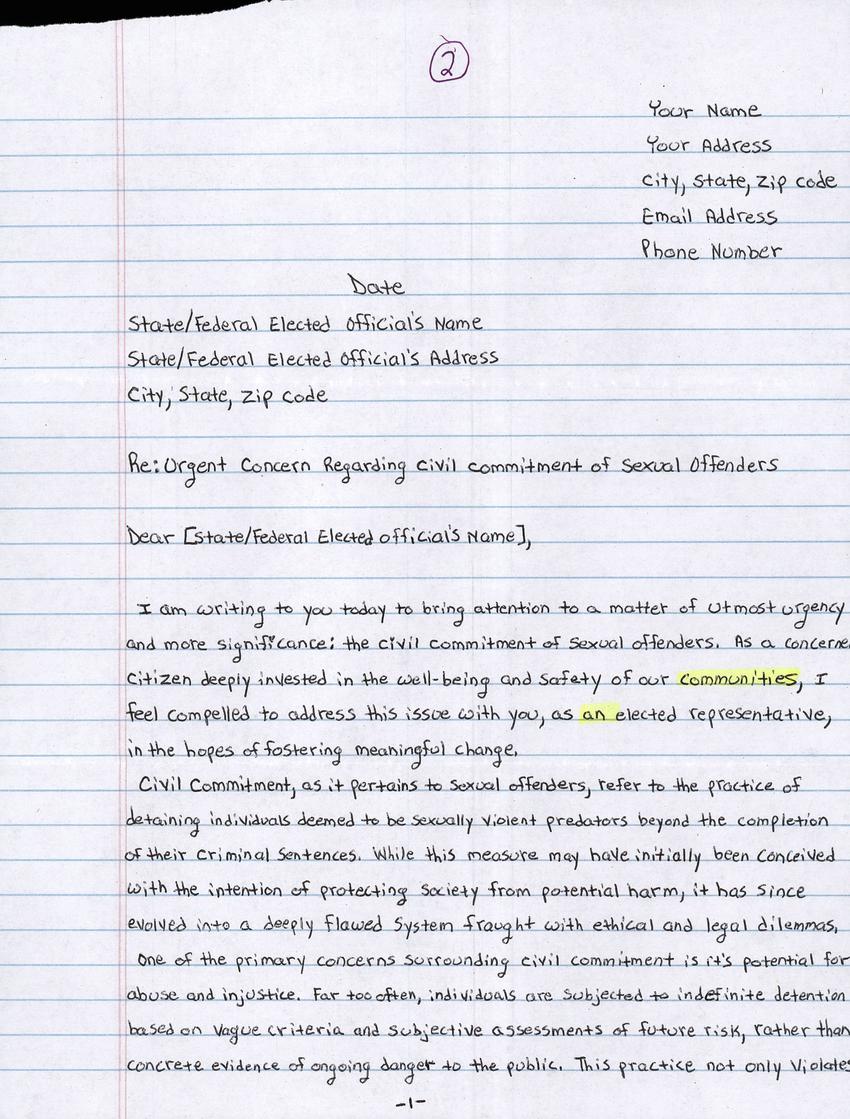 2
Your Name
Your Address
City, State, Zip code
Email Address
Phone Number
Date
State/Federal Elected Official's Name
State/Federal Elected Official's Address
City, State, Zip Code
Re: Urgent Concern Regarding Civil commitment of Sexual Offenders
Dear [State/Federal Elected official's Name],
I am writing to you today to bring attention to a matter of utmost urgency
and more significance: the civil commitment of sexual offenders. As a concerne
Citizen deeply invested in the well-being and safety of our communities, I
feel compelled to address this issue with you, as an elected representative,
in the hopes of fostering meaningful change.
Civil Commitment, as it pertains to sexual offenders, refer to the practice of
detaining individuals deemed to be sexually violent predators beyond the completion
of their criminal sentences. While this measure may have initially been conceived
with the intention of protecting society from potential harm, it has since
evolved into a deeply flawed system fraught with ethical and legal dilemmas,
One of the primary concerns surrounding civil commitment is it's potential for
abuse and injustice. Far too often, individuals are subjected to indefinite detention
based on vague criteria and subjective assessments of future risk, rather than
concrete evidence of ongoing danger to the public. This practice not only violates
-1-